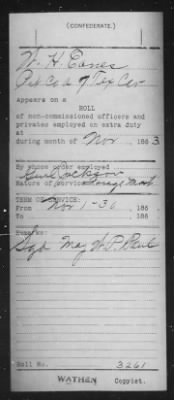 (CONFEDERATE.)
W. H. Eanes
of Tex Cav
Appears on a
ROLL
of non-commissioned officers and
privates employed on extra duty
at
during month of Nov, 186 3
By whom order employed
Genl Jackson
Nature of service Forage Mast
TERM OF SERVICE:
From Nov 1-30, 186
To , 186
Remarks:
Sgd Maj W. P. Paul
Roll No. 3261
WATHEN Copyist.